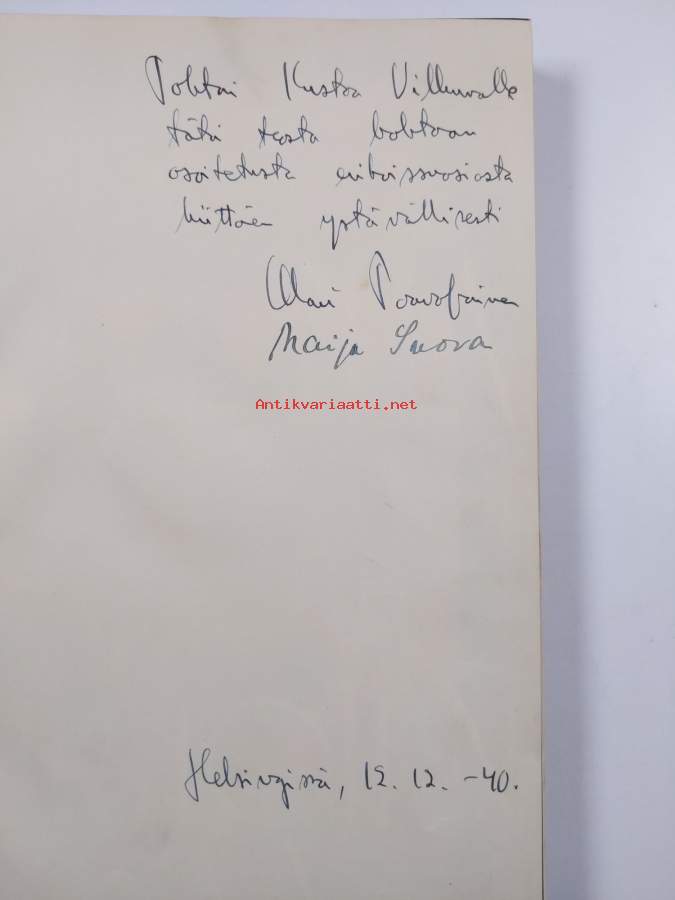 Tohtori Kustaa Vilkunalle
tätä teosta kohtaan
osoitetusta erikoissuosiosta
kiittäen ystävällisesti
Paavolainen
Maija Suova
Antikvariaatti.net
Helsingissä, 12. 12. -40.